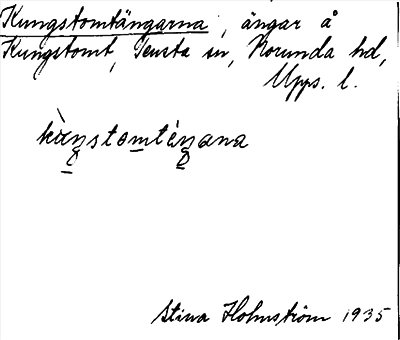 Kungstomtängarna, ängar å
Kungstomt, Tensta sn, Norunda hd,
Upps. l.
kùŋstomtéŋana
Stina Holmström 1935